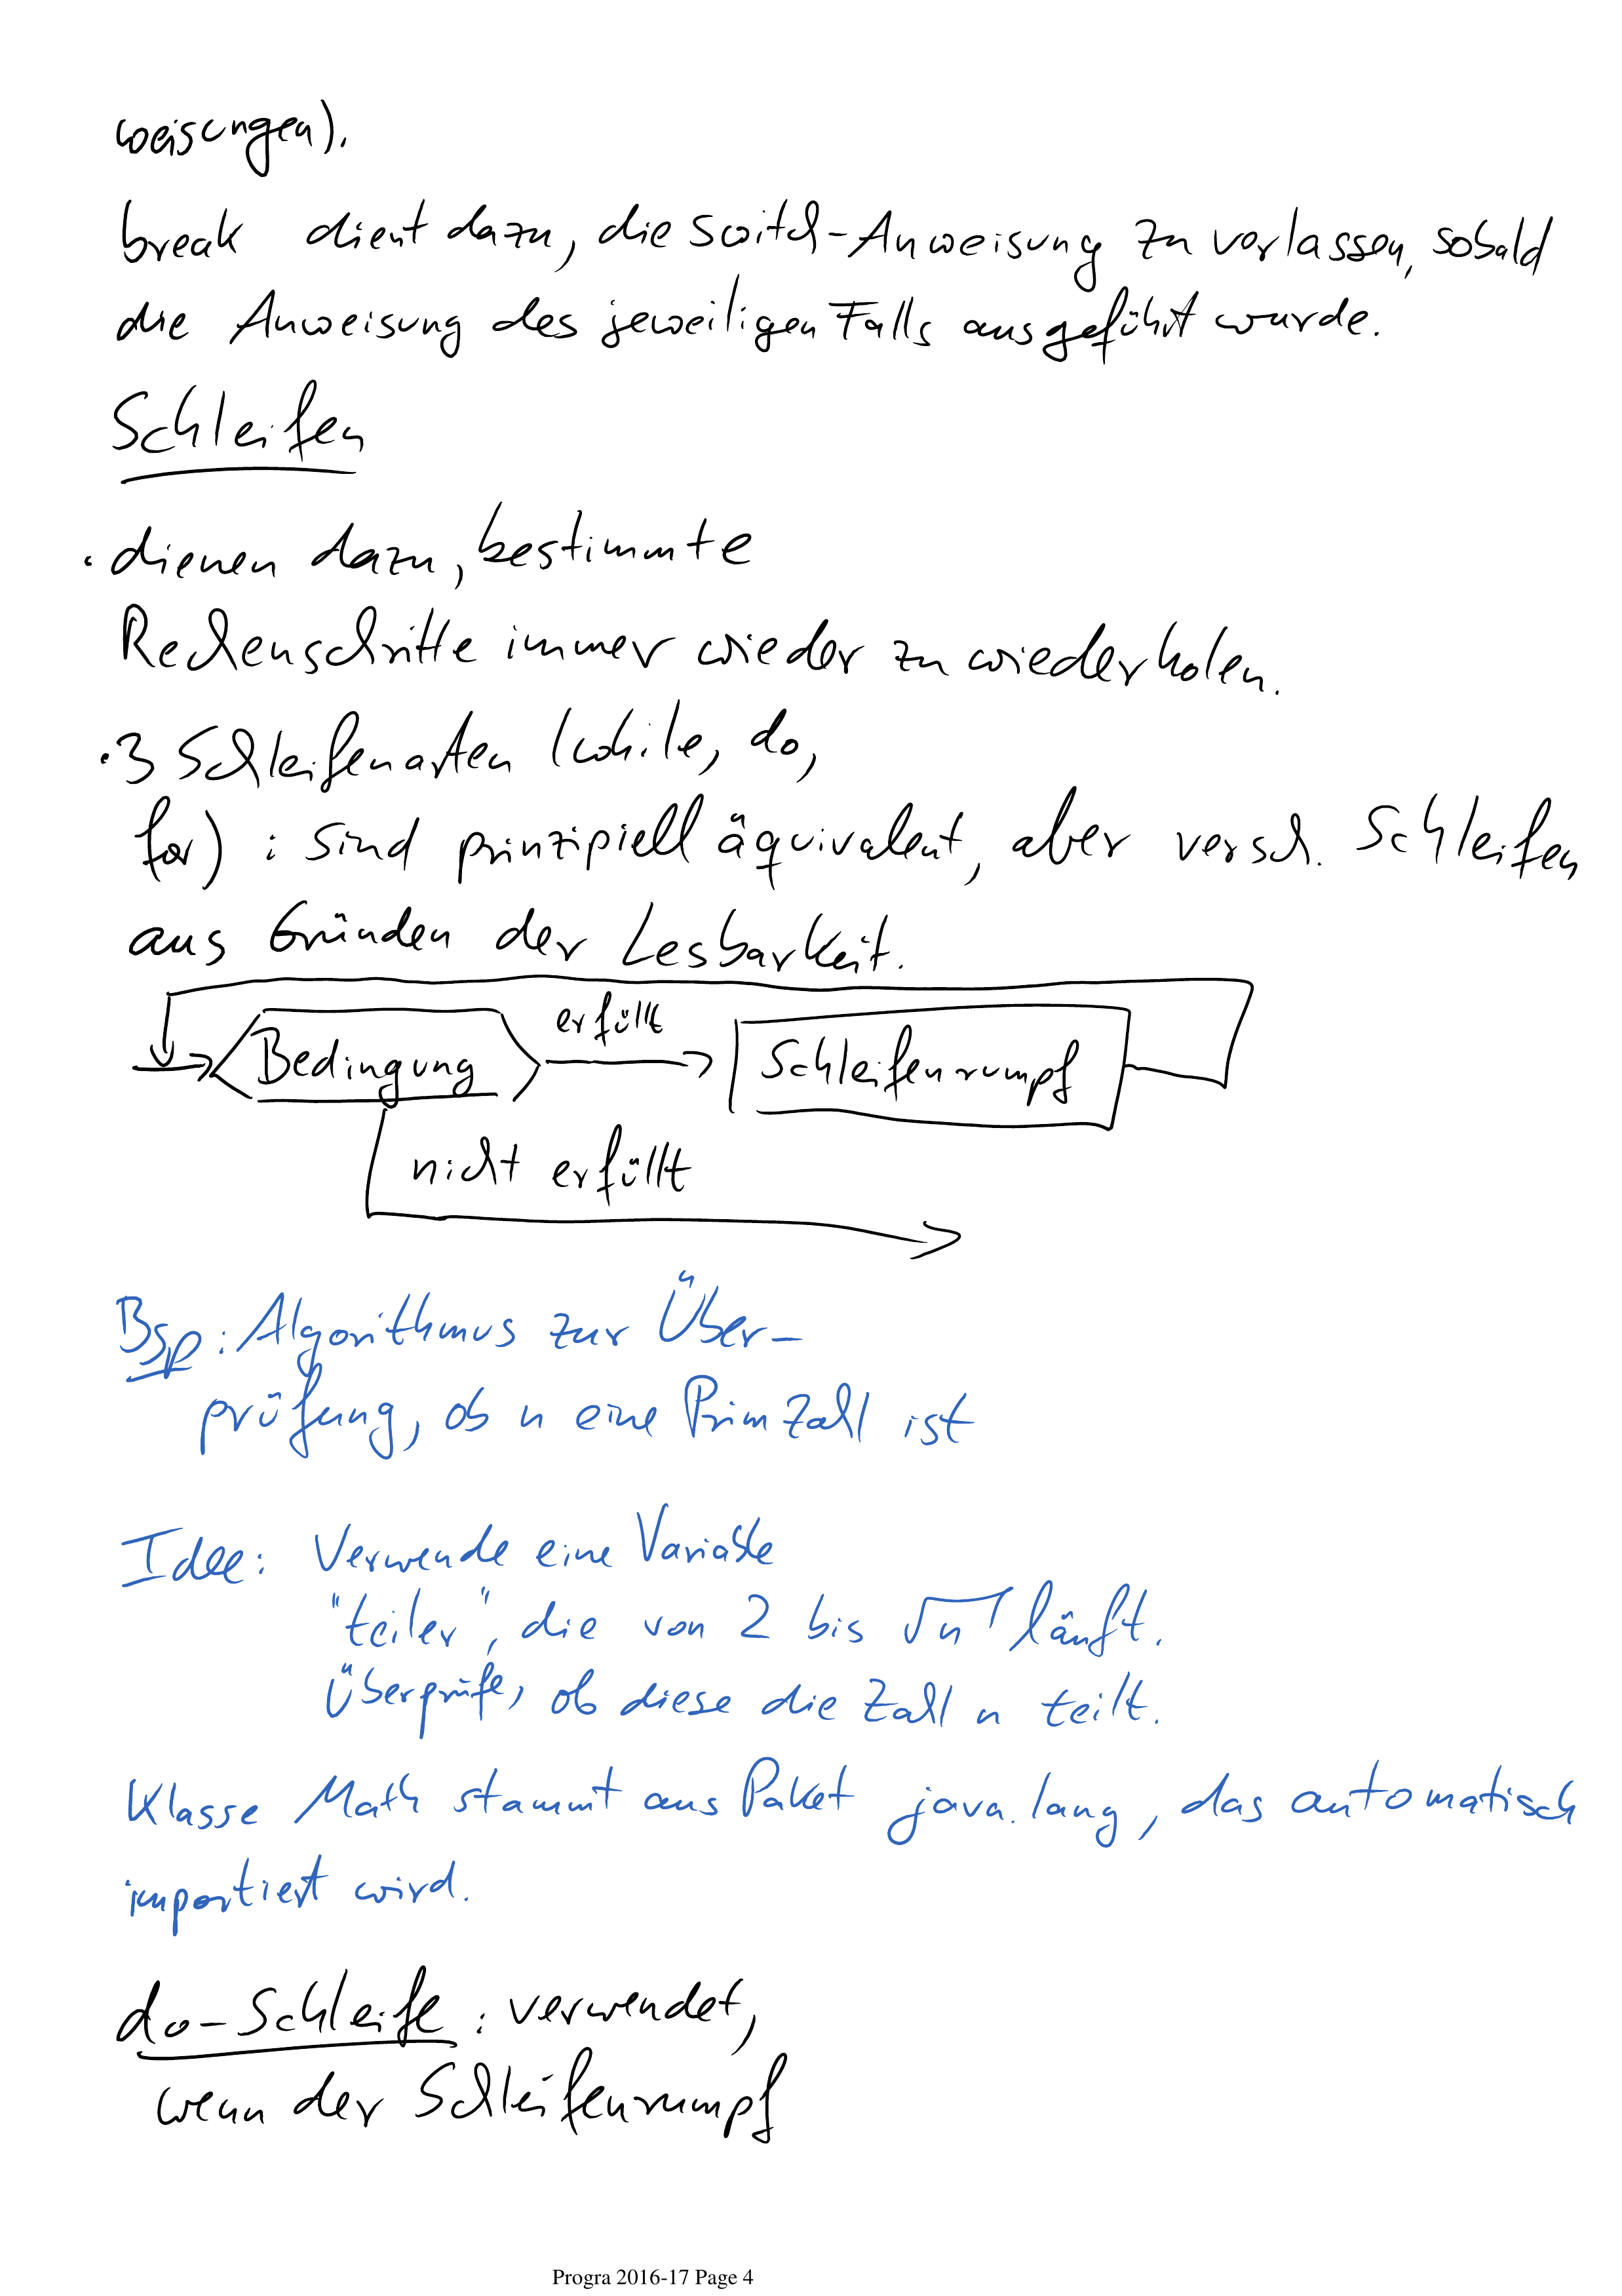 weisungen).
break dient dazu, die switch-Anweisung zu verlassen, sobald
die Anweisung des jeweiligen Falls ausgeführt wurde.
Schleifen
• dienen dazu, bestimmte
Rechenschritte immer wieder zu wiederholen.
• 3 Schleifenarten (while, do,
for) : sind prinzipiell äquivalent, aber versch. Schleifen
aus Gründen der Lesbarkeit.
erfüllt
Bedingung
Schleifenrumpf
nicht erfüllt
Bsp: Algorithmus zur Über-
prüfung, ob n eine Primzahl ist
Idee: Verwende eine Variable
"teiler", die von 2 bis √n läuft.
Überprüfe, ob diese die Zahl n teilt.
Klasse Math stammt aus Paket java.lang, das automatisch
importiert wird.
do-Schleife : verwendet,
wenn der Schleifenrumpf
Progra 2016-17 Page 4